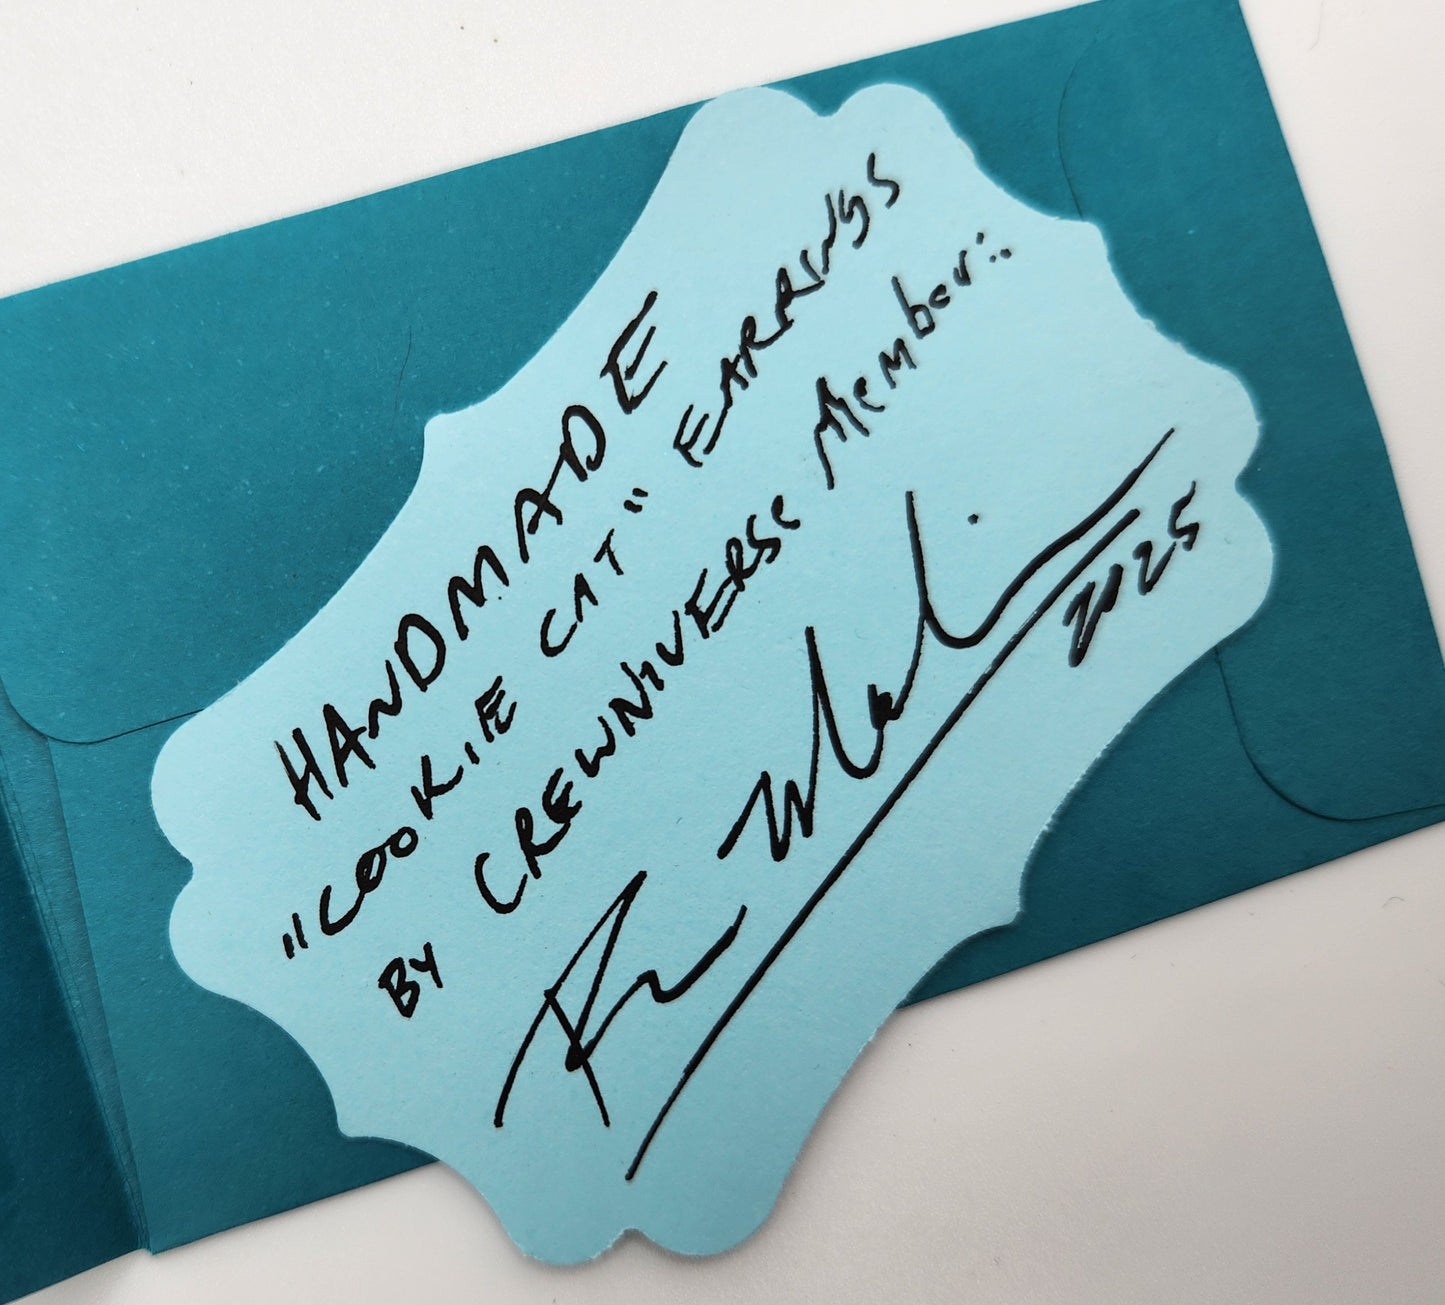 HANDMADE
"COOKIE CAT" EARRINGS
BY CREWNIVERSE Member:
2025